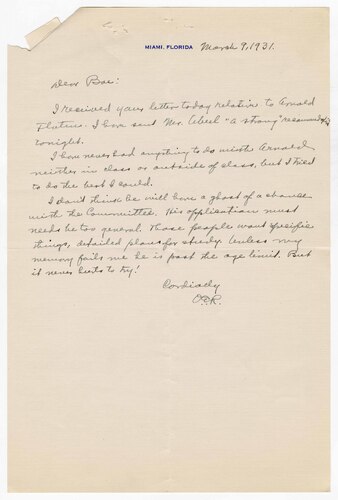 MIAMI, FLORIDA March 9, 1931.
Dear Boe:
I received your letter today relative to Arnold
I have sent Mr. Abell "a strong" recommend
tonight.
I have never had anything to do with Arnold
neither in class or outside of class, but I tried
to do the best I could.
I don't think he will have a ghost of a chance
with the Committee. His application must
needs be too general. Those people want specific
things, detailed plans for study. Unless my
memory fails me he is past the age limit. But
it never hurts to try!
Cordially